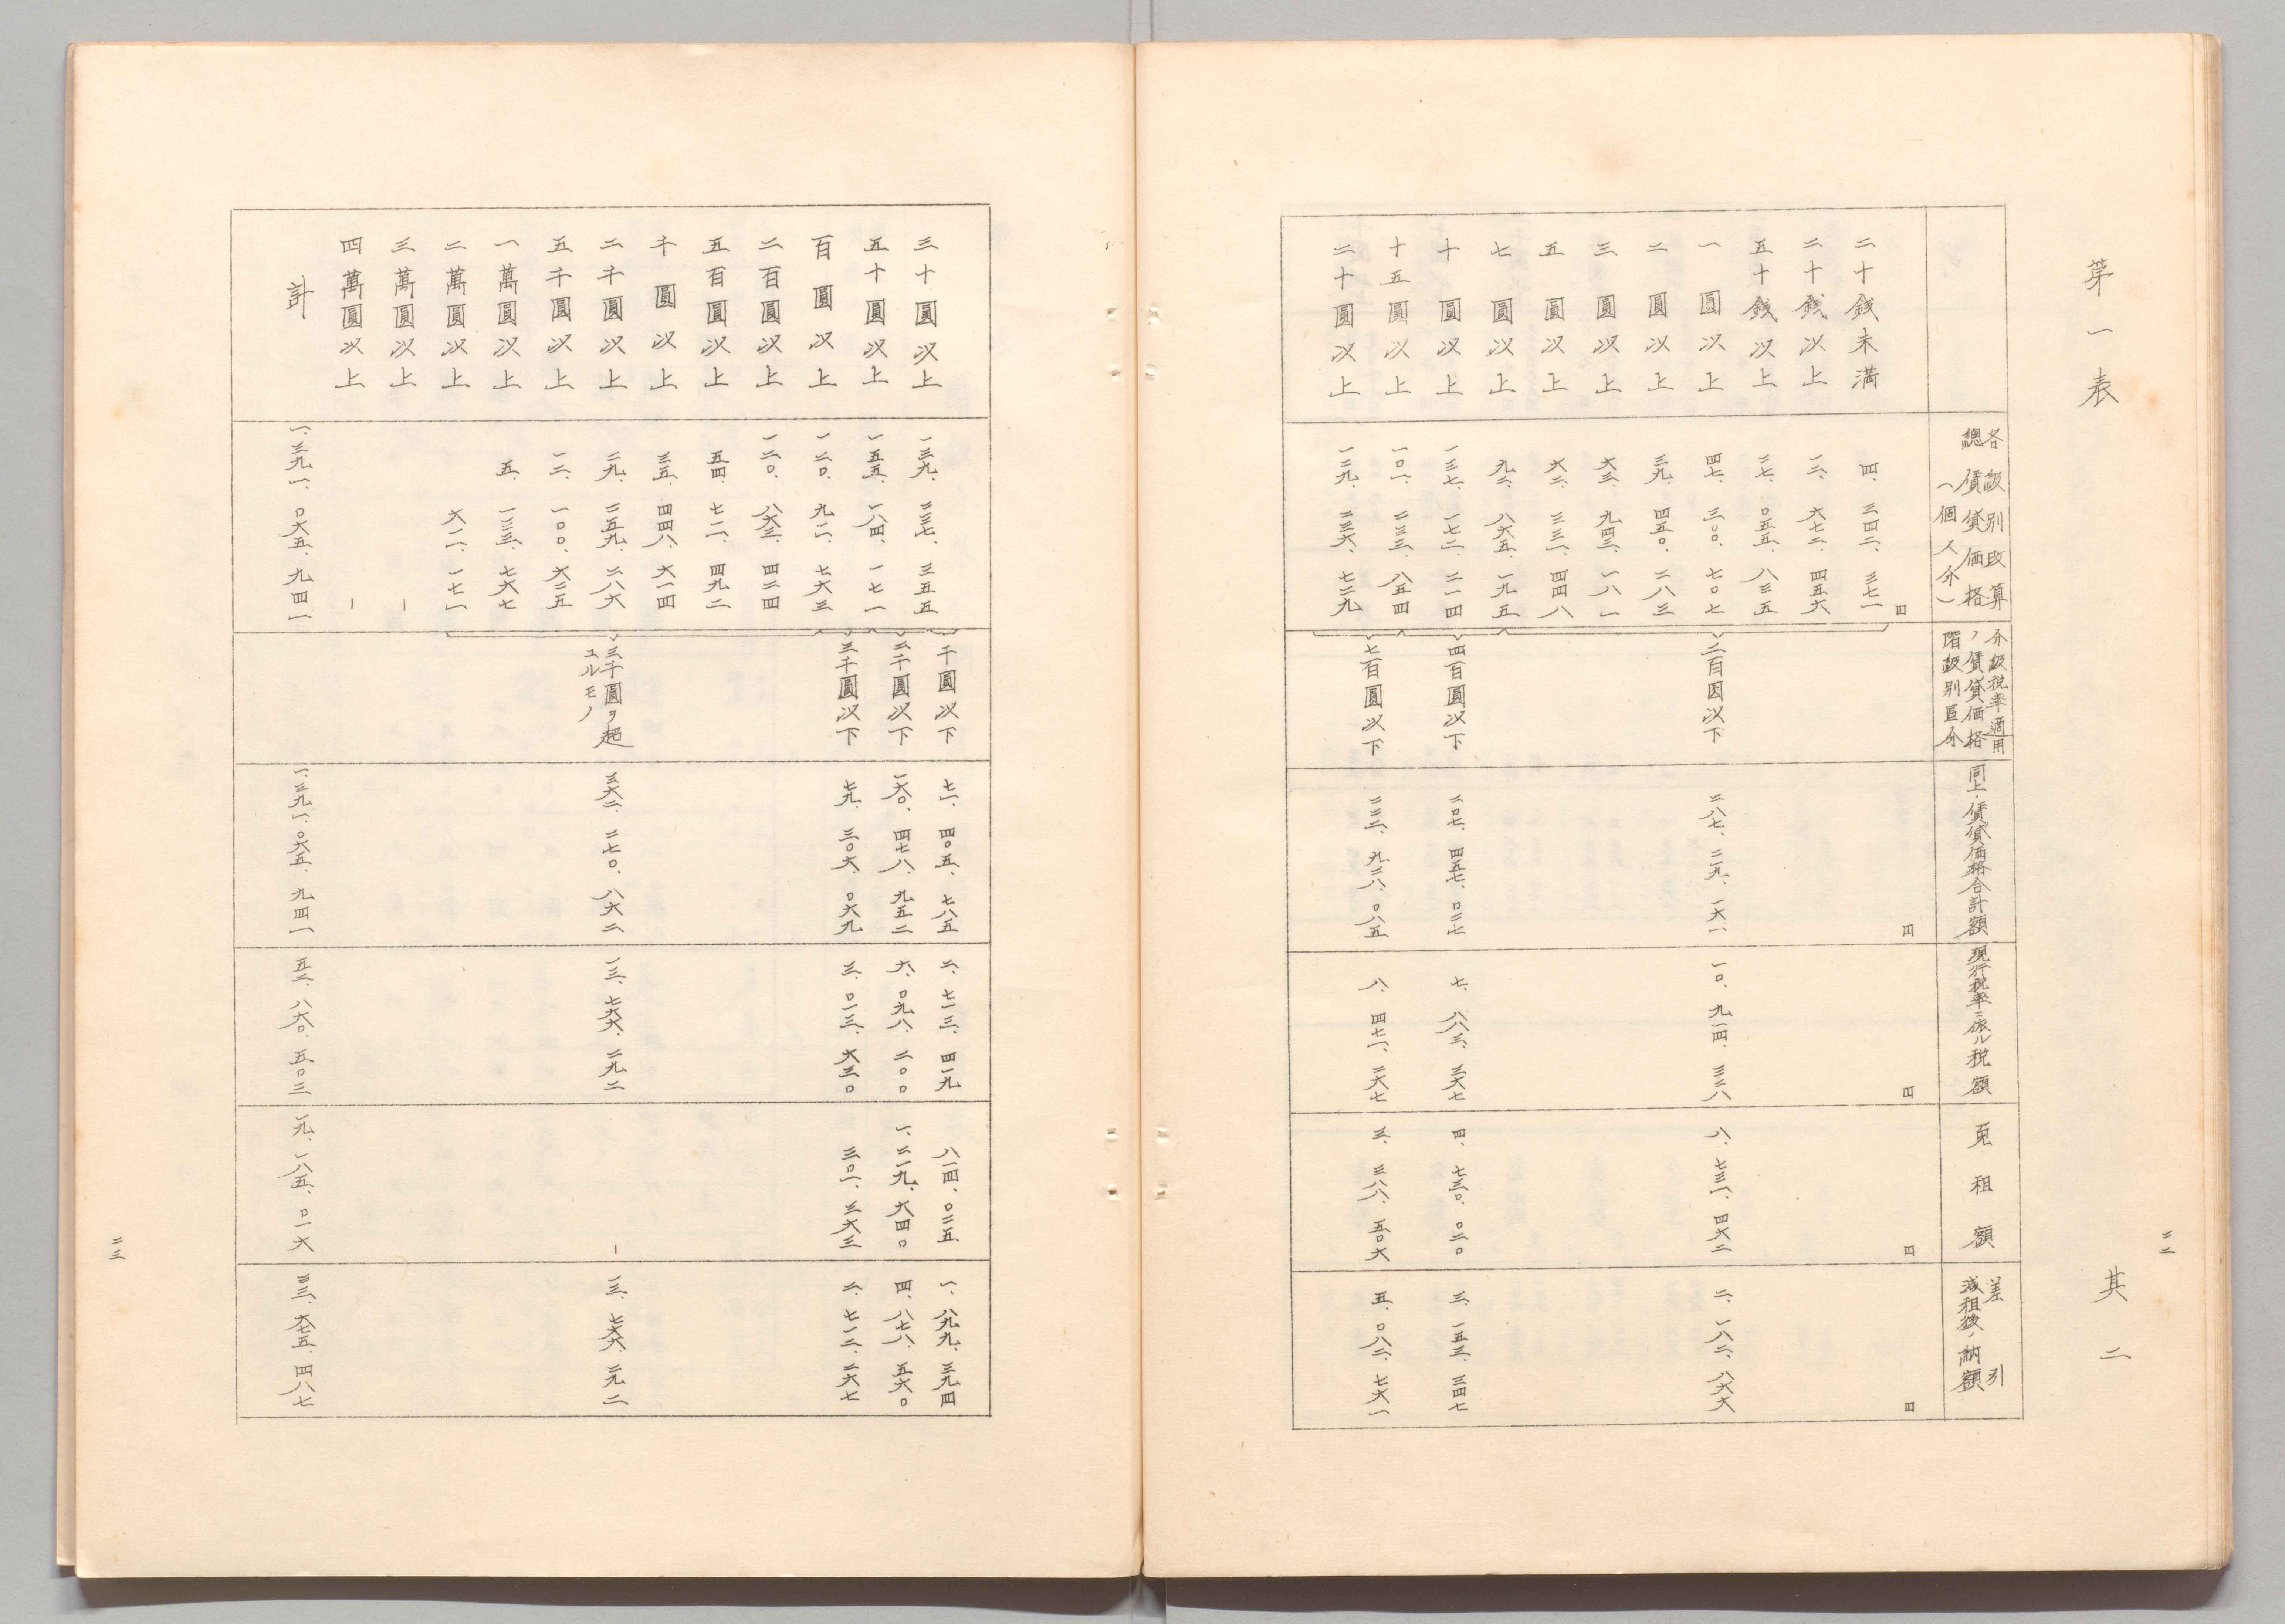 第一表
其二
二二
各級別改算
總賃貸価格
(個人分)
分級税率適用
ノ賃貸価格
階級別區分
同上ノ賃貸価格合計額
現行税率ニ依ル税額
免租額
差引
減租後ノ納額
円 円 円 円 円
二十銭未満 四、三四二、三七一
二十銭以上 一二、六七二、四五六
五十銭以上 二七、〇五五、八三五
一圓以上 四七、三〇〇、七〇七 二百圓以下 二八七、二一九、一六一 一〇、九一四、三二八 八、七三一、四六二 二、一八二、八六六
二圓以上 三九、四五〇、二八三
三圓以上 六三、九四三、一八一
五圓以上 六二、三三一、四四八
七圓以上 九二、八六五、一九五
十圓以上 一三七、一七二、二一四 四百圓以下 二〇七、四五七、〇二七 七、八八三、三六七 四、七三〇、〇二〇 三、一五三、三四七
十五圓以上 一〇一、二三三、八五四 七百圓以下 二二二、九二八、〇八五 八、四七一、二六七 三、三八八、五〇六 五、〇八二、七六一
二十圓以上 一二九、二三六、七二九
三十圓以上 一三九、二三七、三五五 千圓以下 七一、四〇五、七八五 二、七一三、四一九 八一四、〇二五 一、八九九、三九四
五十圓以上 一五五、一八四、一七一 二千圓以下 一六〇、四七八、九五二 六、〇九八、二〇〇 一、二一九、六四〇 四、八七八、五六〇
百圓以上 一二〇、九一二、七六三 三千圓以下 七九、三〇六、〇六九 三、〇一三、六三〇 三〇一、三六三 二、七一二、二六七
二百圓以上 一二〇、八六三、四二四
五百圓以上 五四、七二一、四九二
千圓以上 三五、四四八、六一四
二千圓以上 二九、二五九、二八六 三千圓ヲ超ユルモノ 三六二、二七〇、八六二 一三、七六六、二九二 ー 一三、七六六、二九二
五千圓以上 一二、一〇〇、六二五
一萬圓以上 五、一三三、七六七
二萬圓以上 六一一、一七一
三萬圓以上 ー
四萬圓以上 ー
計 一、三九一、〇六五、九四一 一、三九一、〇六五、九四一 五二、八六〇、五〇三 一九、一八五、〇一六 三三、六七五、四八七
二三